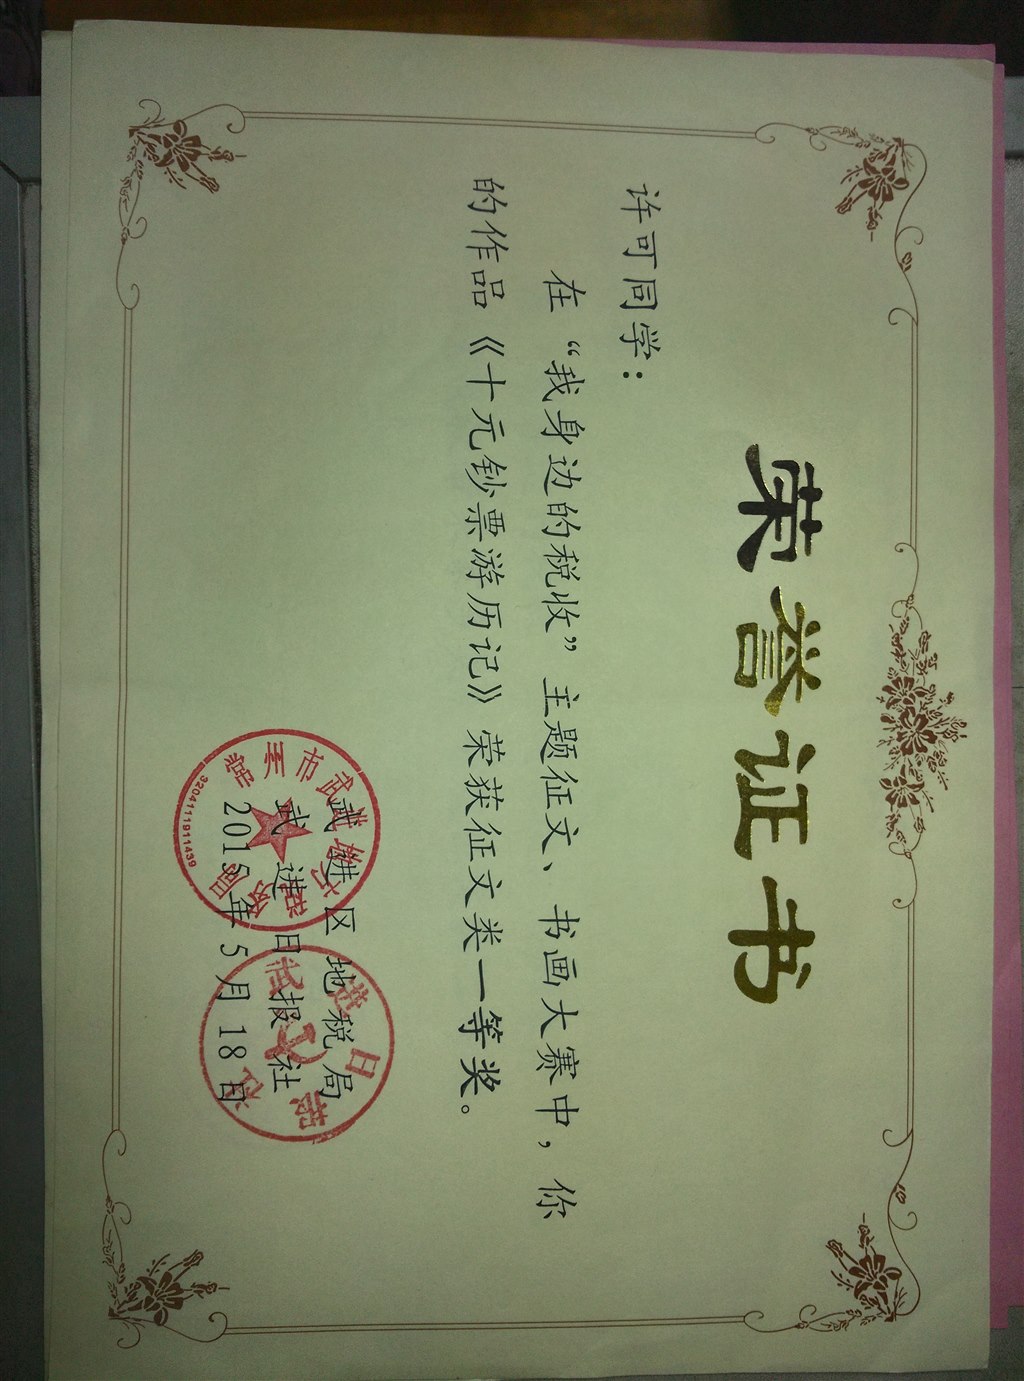 荣誉证书
许可同学：
在“我身边的税收”主题征文、书画大赛中，你
的作品《十元钞票游历记》荣获征文类一等奖。
武进区地税局
武进日报社
2015年5月18日
常州市武进地方税务局
3204111911439
武进日报社